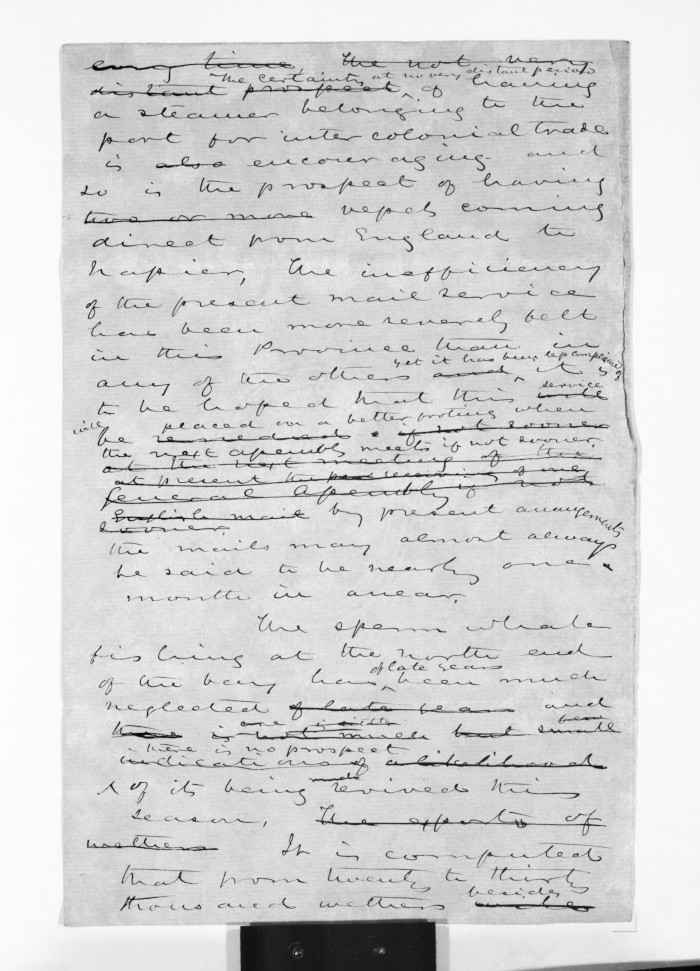 every time, The not very
The certainty at no very distant period
distant prospect of having
a steamer belonging to the
port for inter colonial trade
is also encouraging and
so is the prospect of having
two or more vessels coming
direct from England to
Napier, The inefficiency
of the present mail service
has been more severely felt
in this Province than in
yet it has been less complained of
any of the others and it is
to be hoped that this service
will placed on a better footing when
be remedied if not sooner
the next assembly meets if not sooner.
at the next meeting of the
at present the receiving of one
General Assembly if not
English mail by present arrangements
sooner
the mails may almost always
be said to be nearly one
month in arear.
The sperm whale
fishing at the north end
of late years
of the bay has been much
neglected of late years and
is not much but small
there is no prospect
indications of a likelihood
much
of its being revived this
season, The exports of
wethers It is computed
that from twenty to thirty
besides
thousand wethers